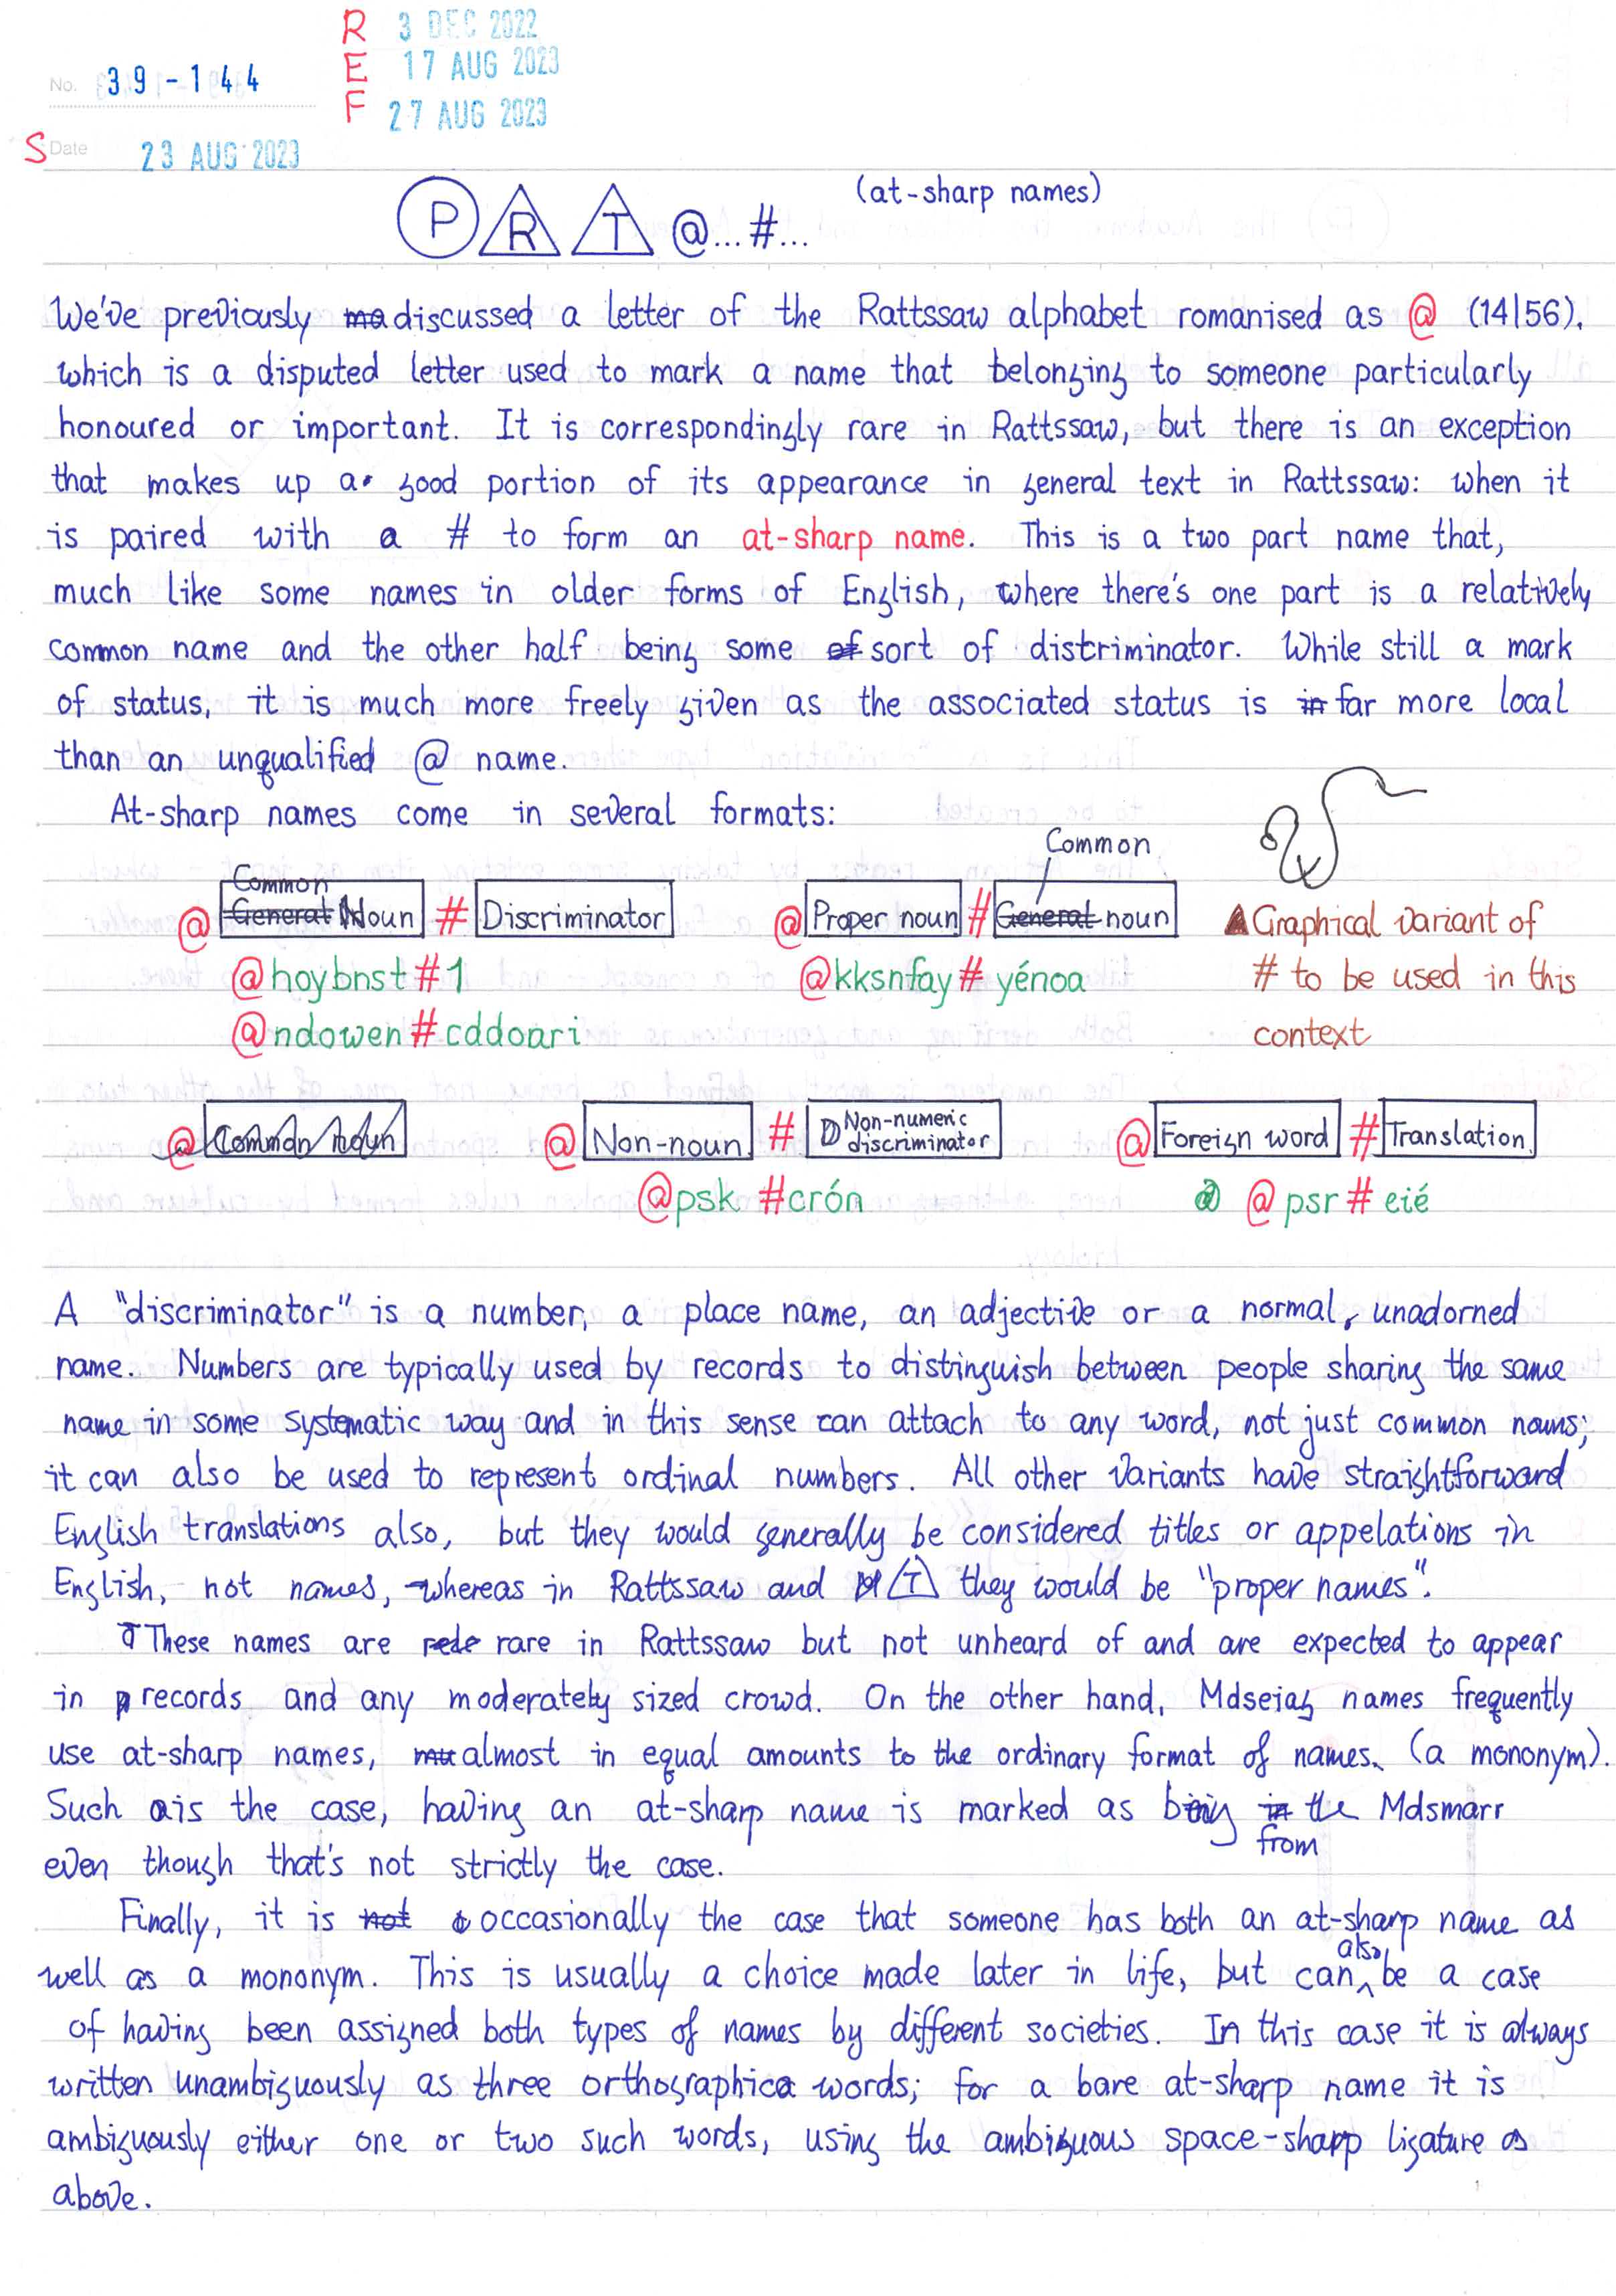 R 3 DEC 2022
E 17 AUG 2023
F 27 AUG 2023
No. 39-144
S Date 23 AUG 2023
P R T @...#... (at-sharp names)
We've previously discussed a letter of the Rattssaw alphabet romanised as @ (14|56),
which is a disputed letter used to mark a name that belonging to someone particularly
honoured or important. It is correspondingly rare in Rattssaw, but there is an exception
that makes up a good portion of its appearance in general text in Rattssaw: when it
is paired with a # to form an at-sharp name. This is a two part name that,
much like some names in older forms of English, where there's one part is a relatively
common name and the other half being some of sort of distriminator. While still a mark
of status, it is much more freely given as the associated status is in far more local
than an unqualified @ name.
At-sharp names come in several formats:
@ Common General Noun # Discriminator
@hoybnst#1
@ndowen#cddoari
Common
@ Proper noun # General noun
@kksnfay#yénoa
Graphical variant of
# to be used in this
context
@ Common noun
@ Non-noun # Non-numeric discriminator
@psk #crón
@ Foreign word # Translation
@psr#eié
A "discriminator" is a number, a place name, an adjective or a normal, unadorned
name. Numbers are typically used by records to distinguish between people sharing the same
name in some systematic way and in this sense can attach to any word, not just common nouns;
it can also be used to represent ordinal numbers. All other variants have straightforward
English translations also, but they would generally be considered titles or appelations in
English, not names, whereas in Rattssaw and T they would be "proper names".
These names are rare in Rattssaw but not unheard of and are expected to appear
in records and any moderately sized crowd. On the other hand, Mdseiag names frequently
use at-sharp names, almost in equal amounts to the ordinary format of names. (a mononym).
Such is the case, having an at-sharp name is marked as being in the Mdsmarr
from
even though that's not strictly the case.
Finally, it is not occasionally the case that someone has both an at-sharp name as
well as a mononym. This is usually a choice made later in life, but can also be a case
of having been assigned both types of names by different societies. In this case it is always
written unambiguously as three orthographica words; for a bare at-sharp name it is
ambiguously either one or two such words, using the ambiguous space-sharp ligature as
above.